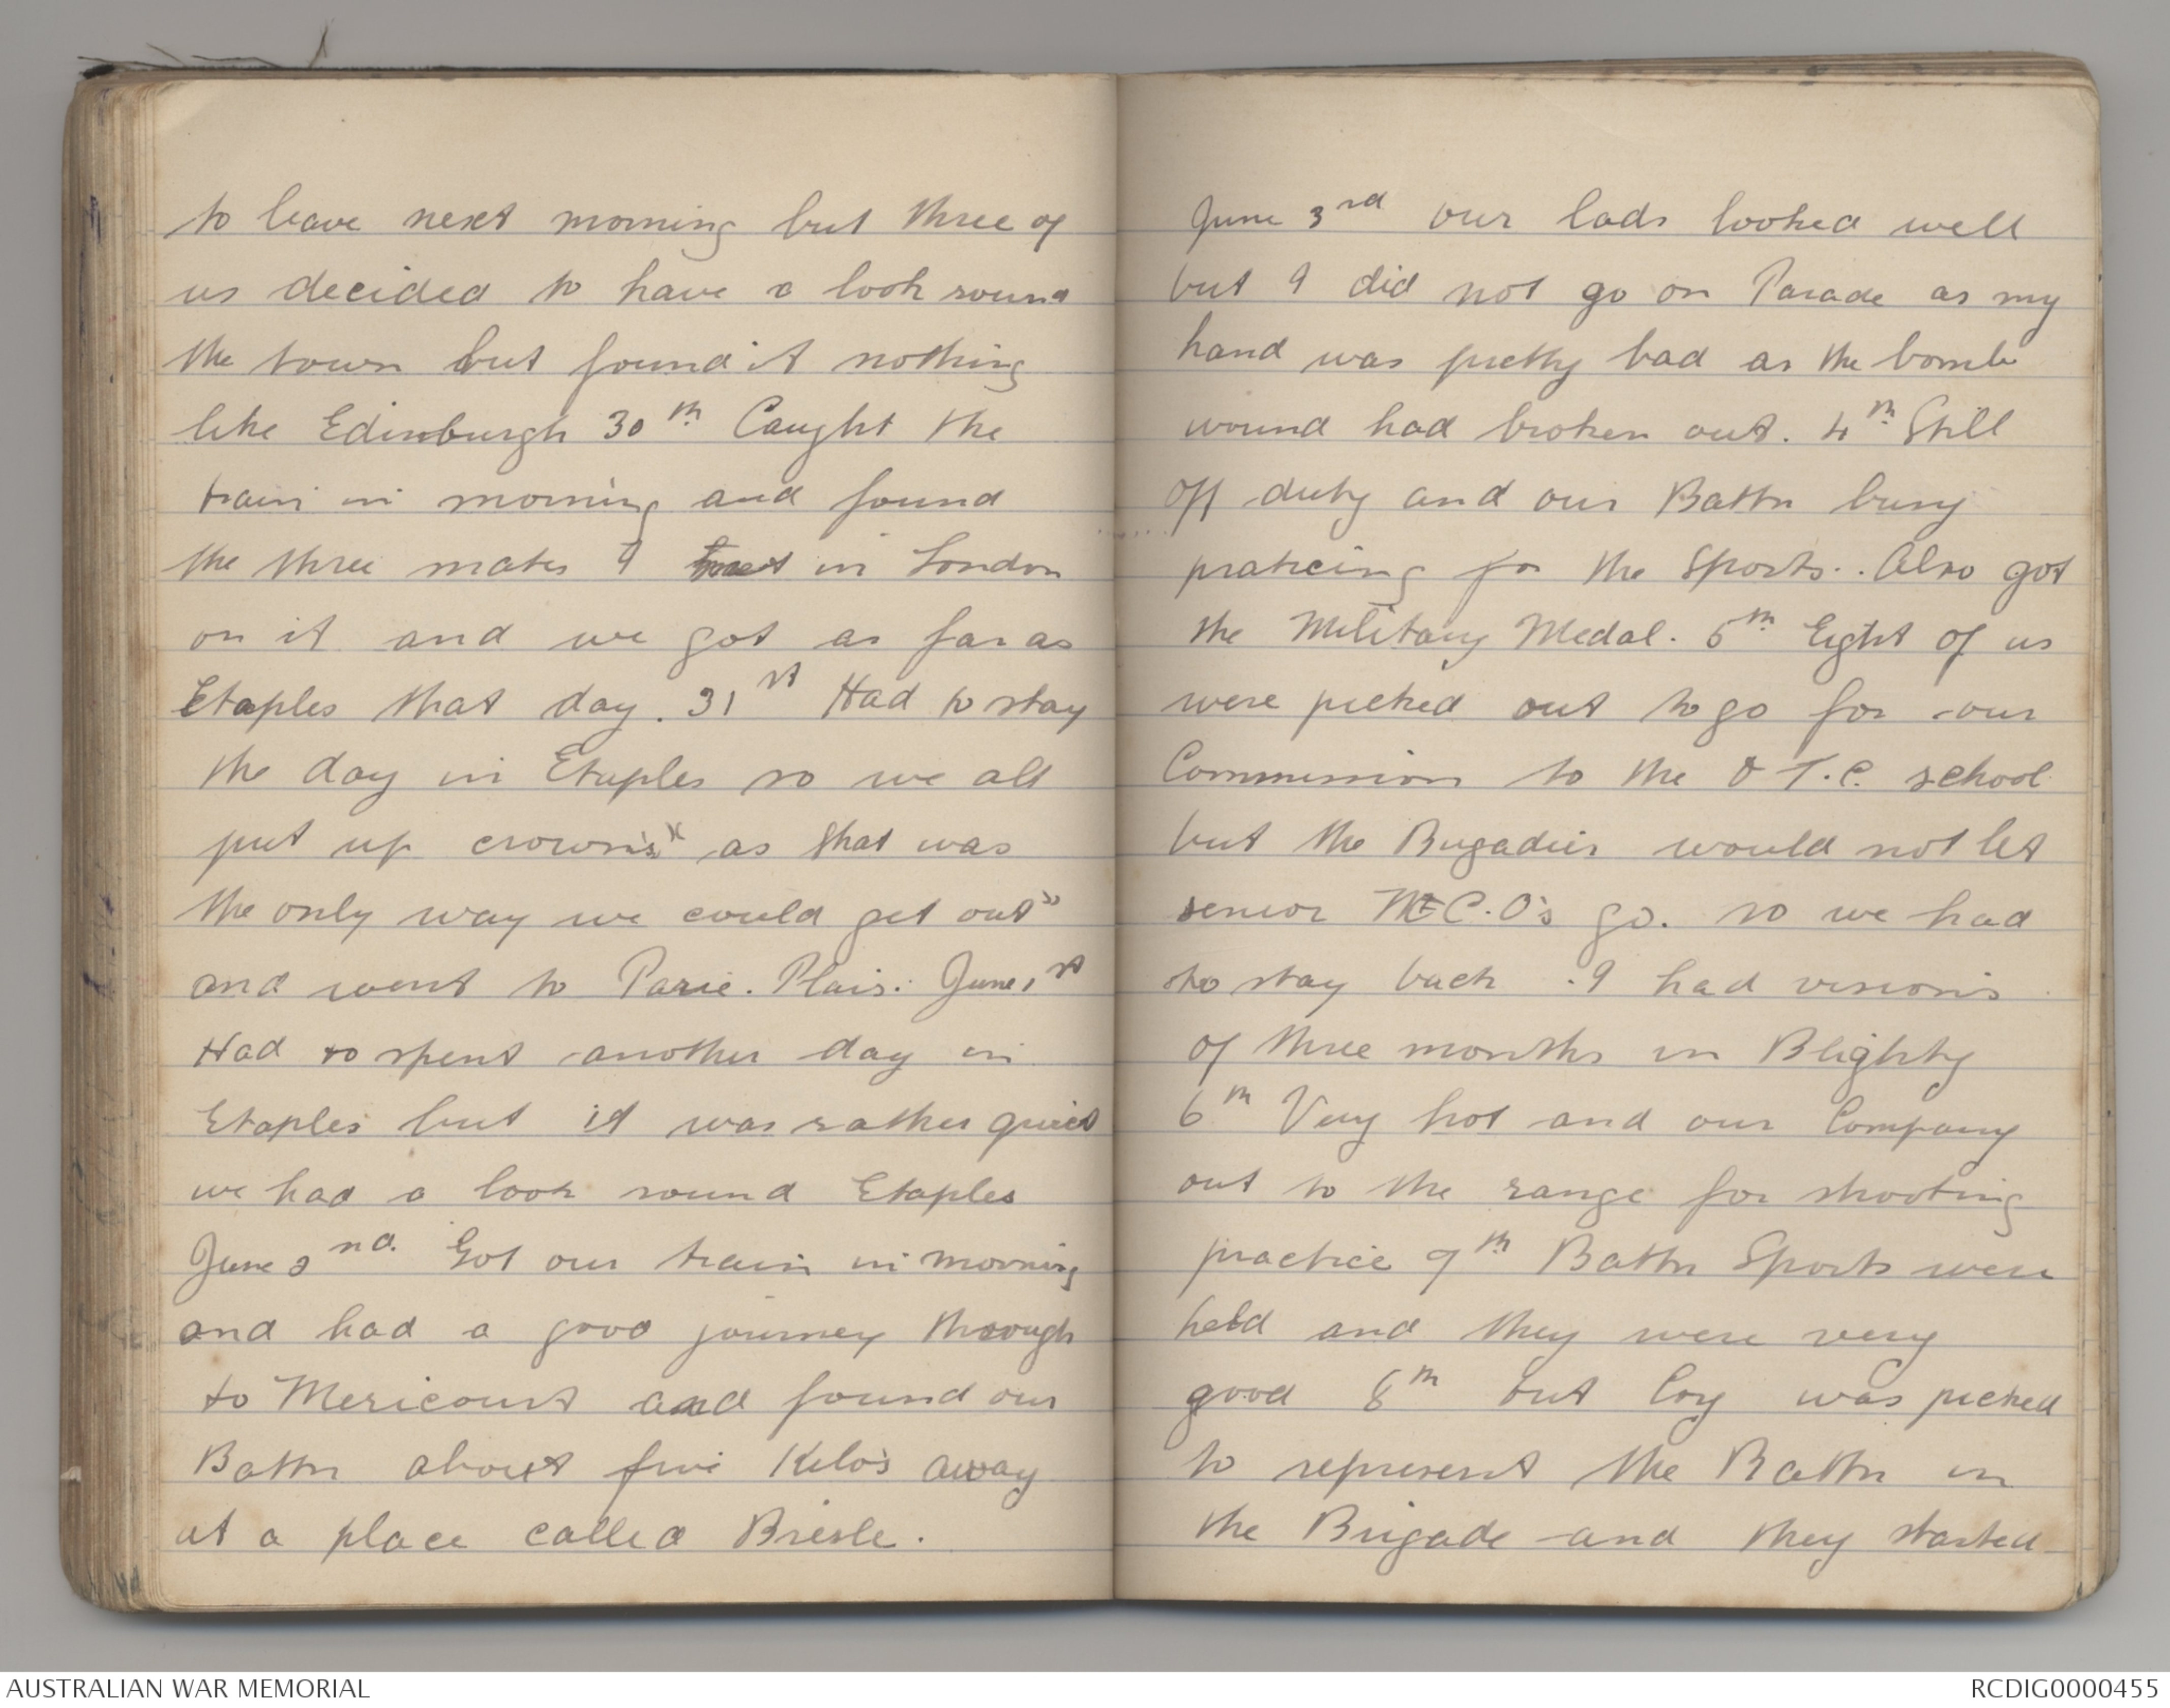 to leave next morning but three of
us decided to have a look round
the town but found it nothing
like Edinburgh 30th Caught the
train in morning and found
the three mates I met in London
on it and we got as far as
Etaples that day. 31st Had to stay
the day in Etaples so we all
put up crowns as that was
the only way we could get out
and went to Parie. Plais. June 1st
Had to spent another day in
Etaples but it was rather quiet
we had a look round Etaples
June 2nd. Got our train in morning
and had a good journey through
to Mericourt and found our
Battn about five Kilo's away
at a place called Bresle.
June 3rd our lads looked well
but I did not go on Parade as my
hand was pretty bad as the bomb
wound had broken out. 4th Still
off duty and our Battn busy
praticing for the Sports. Also got
the Military Medal. 5th Eight of us
were picked out to go for our
Commission to the O T.C. school
but the Brigadier would not let
senior N.C.O's go. so we had
to stay back. I had visions
of three months in Blighty
6th Very hot and our Company
out to the range for shooting
practice 7th Battn Sports were
held and they were very
good 8th out Coy was picked
to represent the Battn in
the Brigade and they started
AUSTRALIAN WAR MEMORIAL
RCDIG0000455